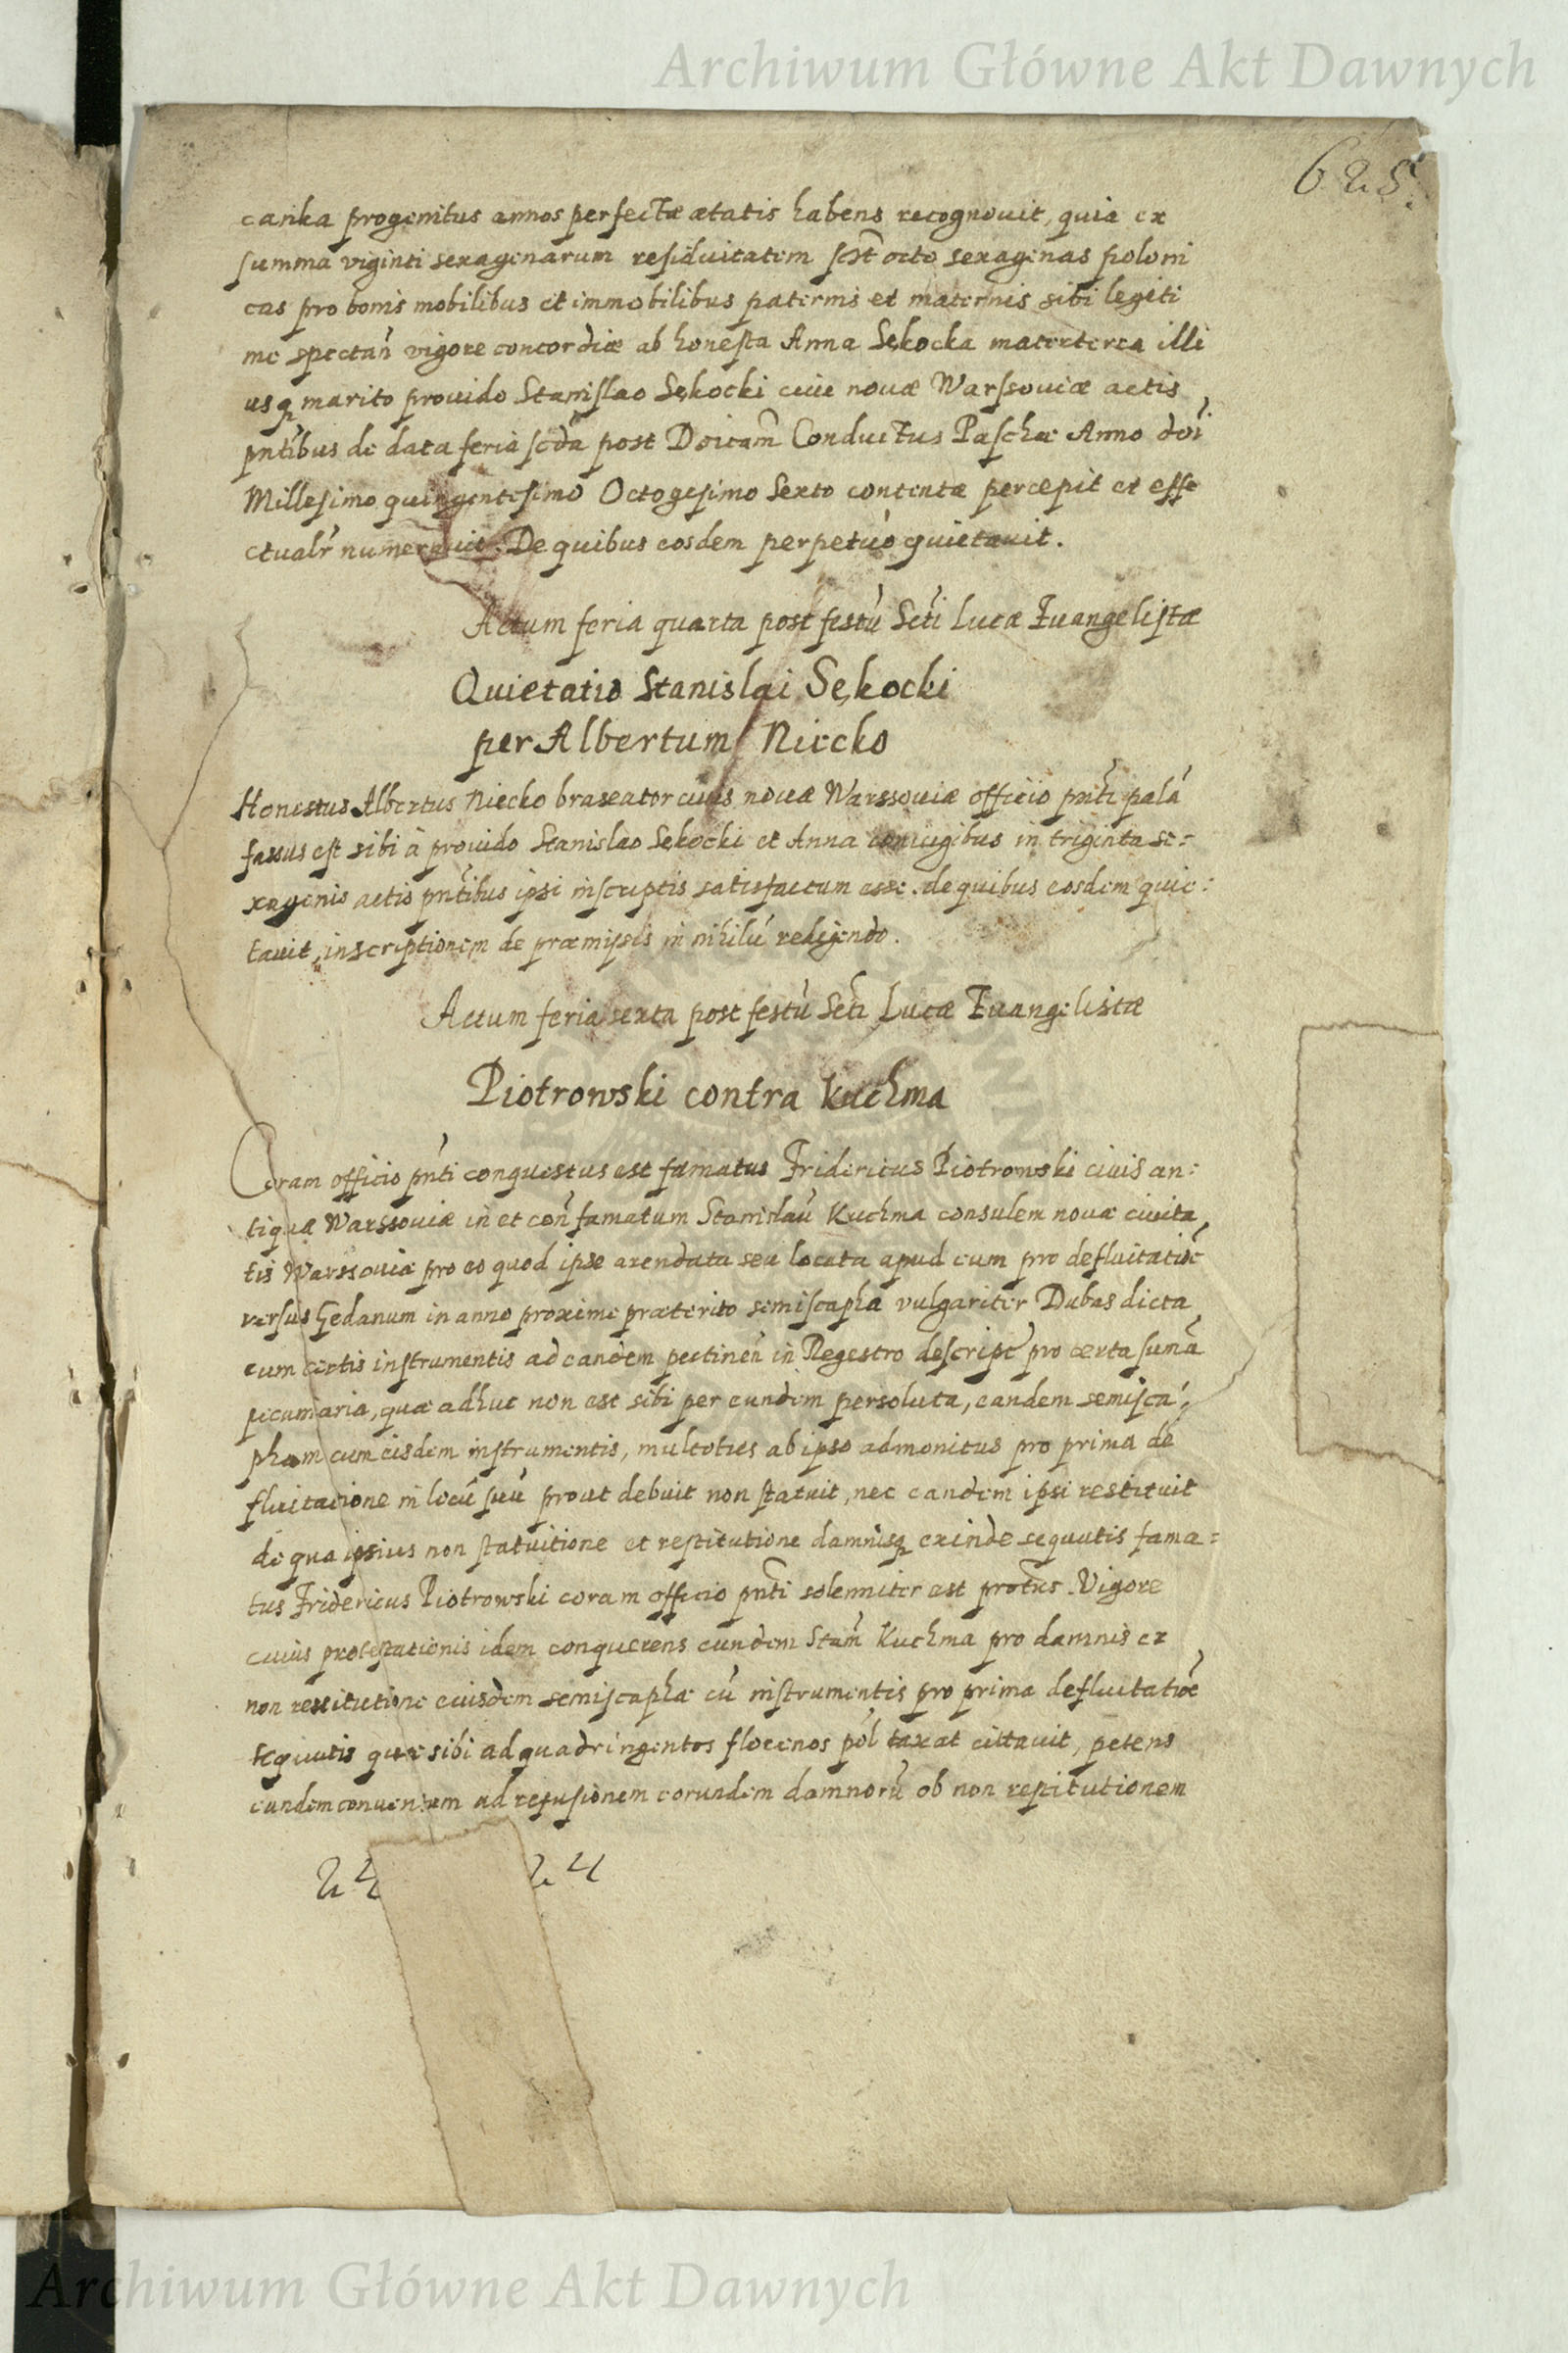 Archiwum Główne Akt Dawnych
625.
carika progenitus annos perfectæ ætatis habens recognouit, quia ex
summa viginti sexagenarum residuitatem sc̃t octo sexagenas poloni
cas pro bonis mobilibus et immobilibus paternis et maternis sibi legiti
me spectan̄ vigore concordiæ ab honesta Anna Sękocka matertera illi
usq̨ marito prouido Stanislao Sękocki ciue nouæ Warssouiæ actis
pn̄tibus de data feria scda post Doīcam Conductus Paschæ Anno doī
Millesimo quingentesimo Octogesimo Sexto contentæ percepit et effe
ctualr̄ numerauit. De quibus eosdem perpetuo quietauit.
Actum feria quarta post festū Sctī Lucæ Euangelistæ
Quietatio Stanislai Sękocki
per Albertum Niecko
Honestus Albertus Niecko braseator ciuis nouæ Warssouiæ officio pn̄ti palā
fassus est sibi à prouido Stanislao Sękocki et Anna coniugibus in triginta se=
xagenis actis pn̄tibus ipsi inscriptis satisfactum esse. de quibus eosdem quie:
tauit, inscriptionem de præmissis in nihilū redigendo.
Actum feria sexta post festū Sctī Lucæ Euangelistæ
Piotrowski contra Kuchma
Coram officio pn̄ti conquestus est famatus Fridericus Piotrowski ciuis an:
tiquæ Warssouiæ in et con̄ famatum Stanislaū Kuchma consulem nouæ ciuita
tis Warssouiæ pro eo quod ipse arendata seu locata apud eum pro defluitatiōe
versus Gedanum in anno proxime præterito semiscapha vulgariter Dubas dicta
cum certis instrumentis ad eandem pertinen̄ in Regestro descript̄ pro certa sum̄a
pecuniaria, quæ adhuc non est sibi per eundem persoluta, eandem semisca=
pham cum eisdem instrumentis, multoties ab ipso admonitus pro prima de
fluitatione in locū suū prout debuit non statuit, nec eandem ipsi restituit
de qua ipsius non statuitione et restitutione damnisq̨ exinde sequutis fama=
tus Fridericus Piotrowski coram officio pn̄ti solenniter est protūs. Vigore
cuius protestationis idem conquerens eundem Stan̄ Kuchma pro damnis ex
non restitutione eiusdem semiscaphæ cū instrumentis pro prima defluitatiōe
sequutis quæ sibi ad quadringentos florenos pol̄ taxat cittauit, petens
eundem conuentum ad refusionem eorundem damnorū ob non restitutionem
24 24
Archiwum Główne Akt Dawnych